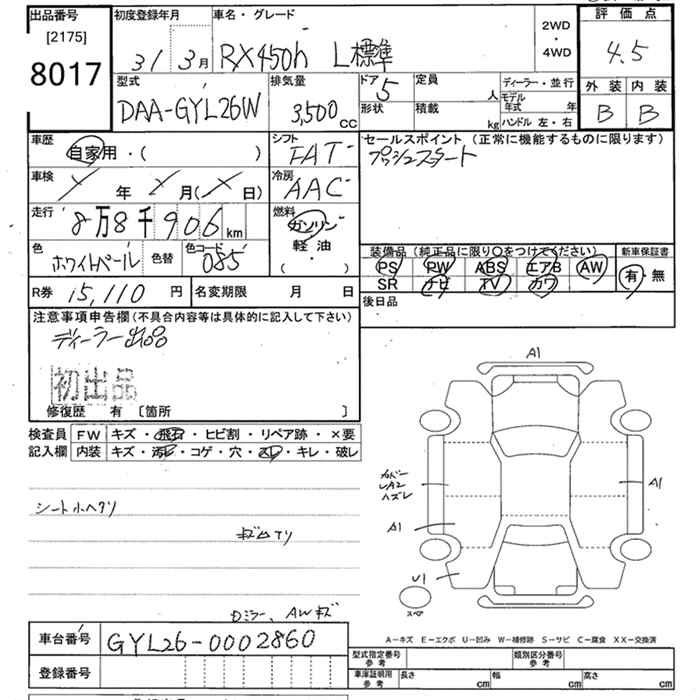 出品番号
[2175]
8017
初度登録年月
31 3月
車名・グレード
RX450h L標準
2WD
・
4WD
評価点
4.5
外装 内装
B B
型式
DAA-GYL26W
排気量
3,500cc
ドア
5
定員
人
形状
積載
kg
ディーラー・並行
モデル年式 年
ハンドル 左・右
車歴
自家用・( )
シフト
FAT
車検
年 月( 日)
冷房
AAC
走行
8万8千906km
燃料
ガソリン
軽油
( ・ )
色
ホワイトパール
色替
色コード
085
R券 15,110円
名変期限 月 日
セールスポイント (正常に機能するものに限ります)
プッシュスタート
装備品(純正品に限り〇をつけてください)
PS PW ABS エアB AW
SR ナビ TV カワ
新車保証書
有・無
後日品
注意事項申告欄(不具合内容等は具体的に記入して下さい)
ディーラー出品
初出品
修復歴 有 〔箇所 〕
検査員
記入欄
FW キズ・飛石・ヒビ割・リペア跡・×要
内装 キズ・汚レ・コゲ・穴・スレ・キレ・破レ
シート小ヘタリ
Dミラー、AWキズ
A1
カバー
ハズレ
A1
A1
U1
スペア
A-キズ E-エクボ U-凹み W-補修跡 S-サビ C-腐食 XX-交換済
車台番号 GYL26-0002860
登録番号
型式指定番号
参考
類別区分番号
参考
車庫証明用
参考
長さ cm
幅 cm
高さ cm